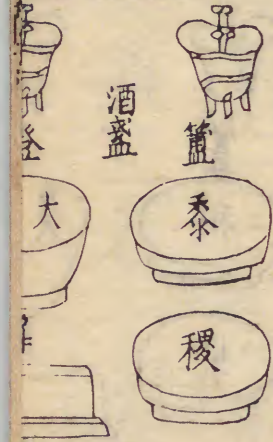 簠
黍
稷
酒盞
大